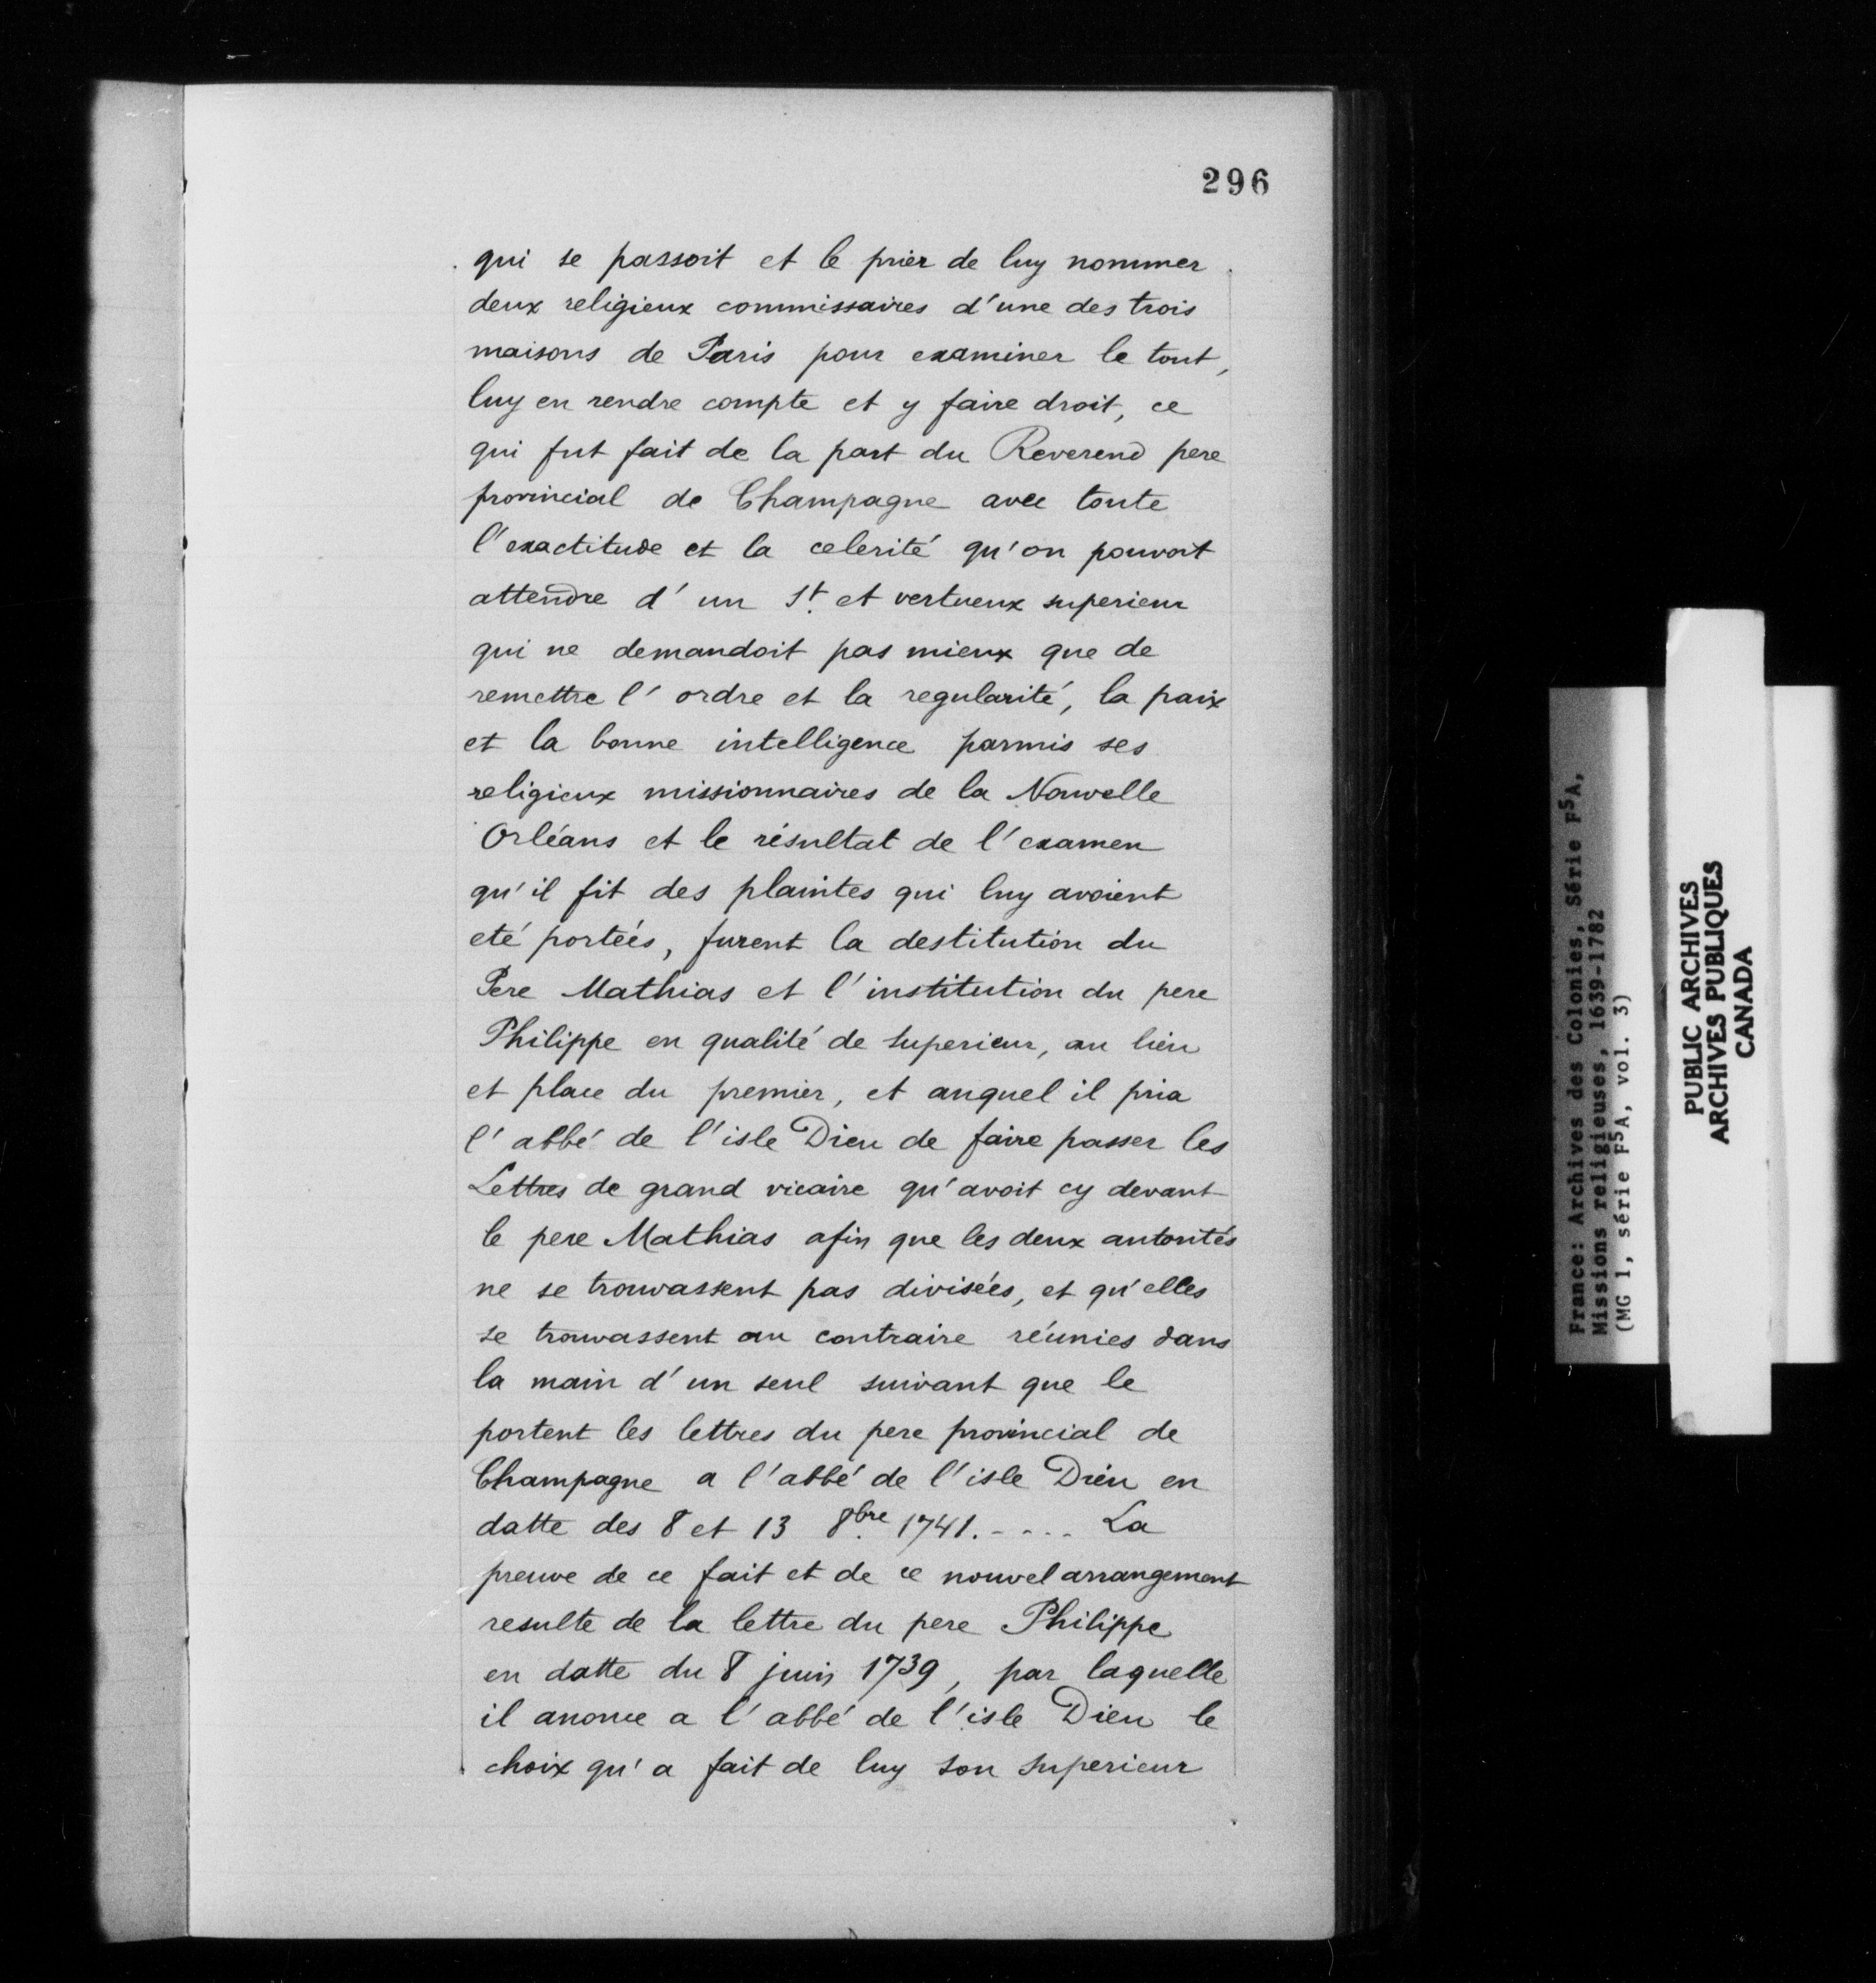 296
qui se passoit et le prier de luy nommer
deux religieux commissaires d'une des trois
maisons de Paris pour examiner le tout,
luy en rendre compte et y faire droit, ce
qui fut fait de la part du Reverend pere
provincial de Champagne avec toute
l'exactitude et la celerité qu'on pouvoit
attendre d'un St. et vertueux superieur
qui ne demandoit pas mieux que de
remettre l'ordre et la regularité, la paix
et la bonne intelligence parmis ses
religieux missionnaires de la Nouvelle
Orléans et le résultat de l'examen
qu'il fit des plaintes qui luy avoient
eté portées, furent la destitution du
Pere Mathias et l'institution du pere
Philippe en qualité de superieur, au lieu
et place du premier, et auquel il pria
l'abbé de l'isle Dieu de faire passer les
Lettres de grand vicaire qu'avoit cy devant
le pere Mathias afin que les deux autorités
ne se trouvassent pas divisées, et qu'elles
se trouvassent au contraire réunies dans
la main d'un seul suivant que le
portent les lettres du pere provincial de
Champagne a l'abbé de l'isle Dieu en
datte des 8 et 13 8bre 1741. - - - . La
preuve de ce fait et de ce nouvel arrangement
resulte de la lettre du pere Philippe
en datte du 8 juin 1739, par laquelle
il anonce a l'abbé de l'isle Dieu le
choix qu'a fait de luy son superieur
France: Archives des Colonies, Série F5A,
Missions religieuses, 1639-1782
(MG 1, série F5A, vol. 3)
PUBLIC ARCHIVES
ARCHIVES PUBLIQUES
CANADA